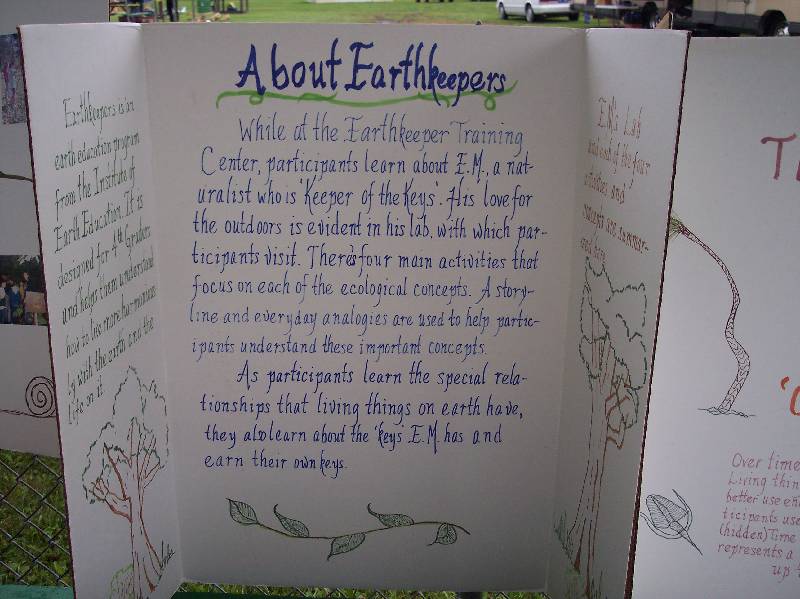 Earthkeepers is an
earth education program
from the Institute of
Earth Education. It is
designed for 4th Graders
and helps them understand
how to live more harmonious-
ly with the earth and the
life on it.
About Earthkeepers
While at the Earthkeeper Training
Center, participants learn about E.M., a nat-
uralist who is 'Keeper of the Keys'. His love for
the outdoors is evident in his lab, with which par-
ticipants visit. There's four main activities that
focus on each of the ecological concepts. A story-
line and everyday analogies are used to help partic-
ipants understand these important concepts.
As participants learn the special rela-
tionships that living things on earth have,
they also learn about the 'keys' E.M. has and
earn their own keys.
E.M.'s Lab
and each of the four
activities and
concepts are summar-
ized here.
Over time
Living thin
better use en
ticipants use
(hidden) Time
represents a
up t